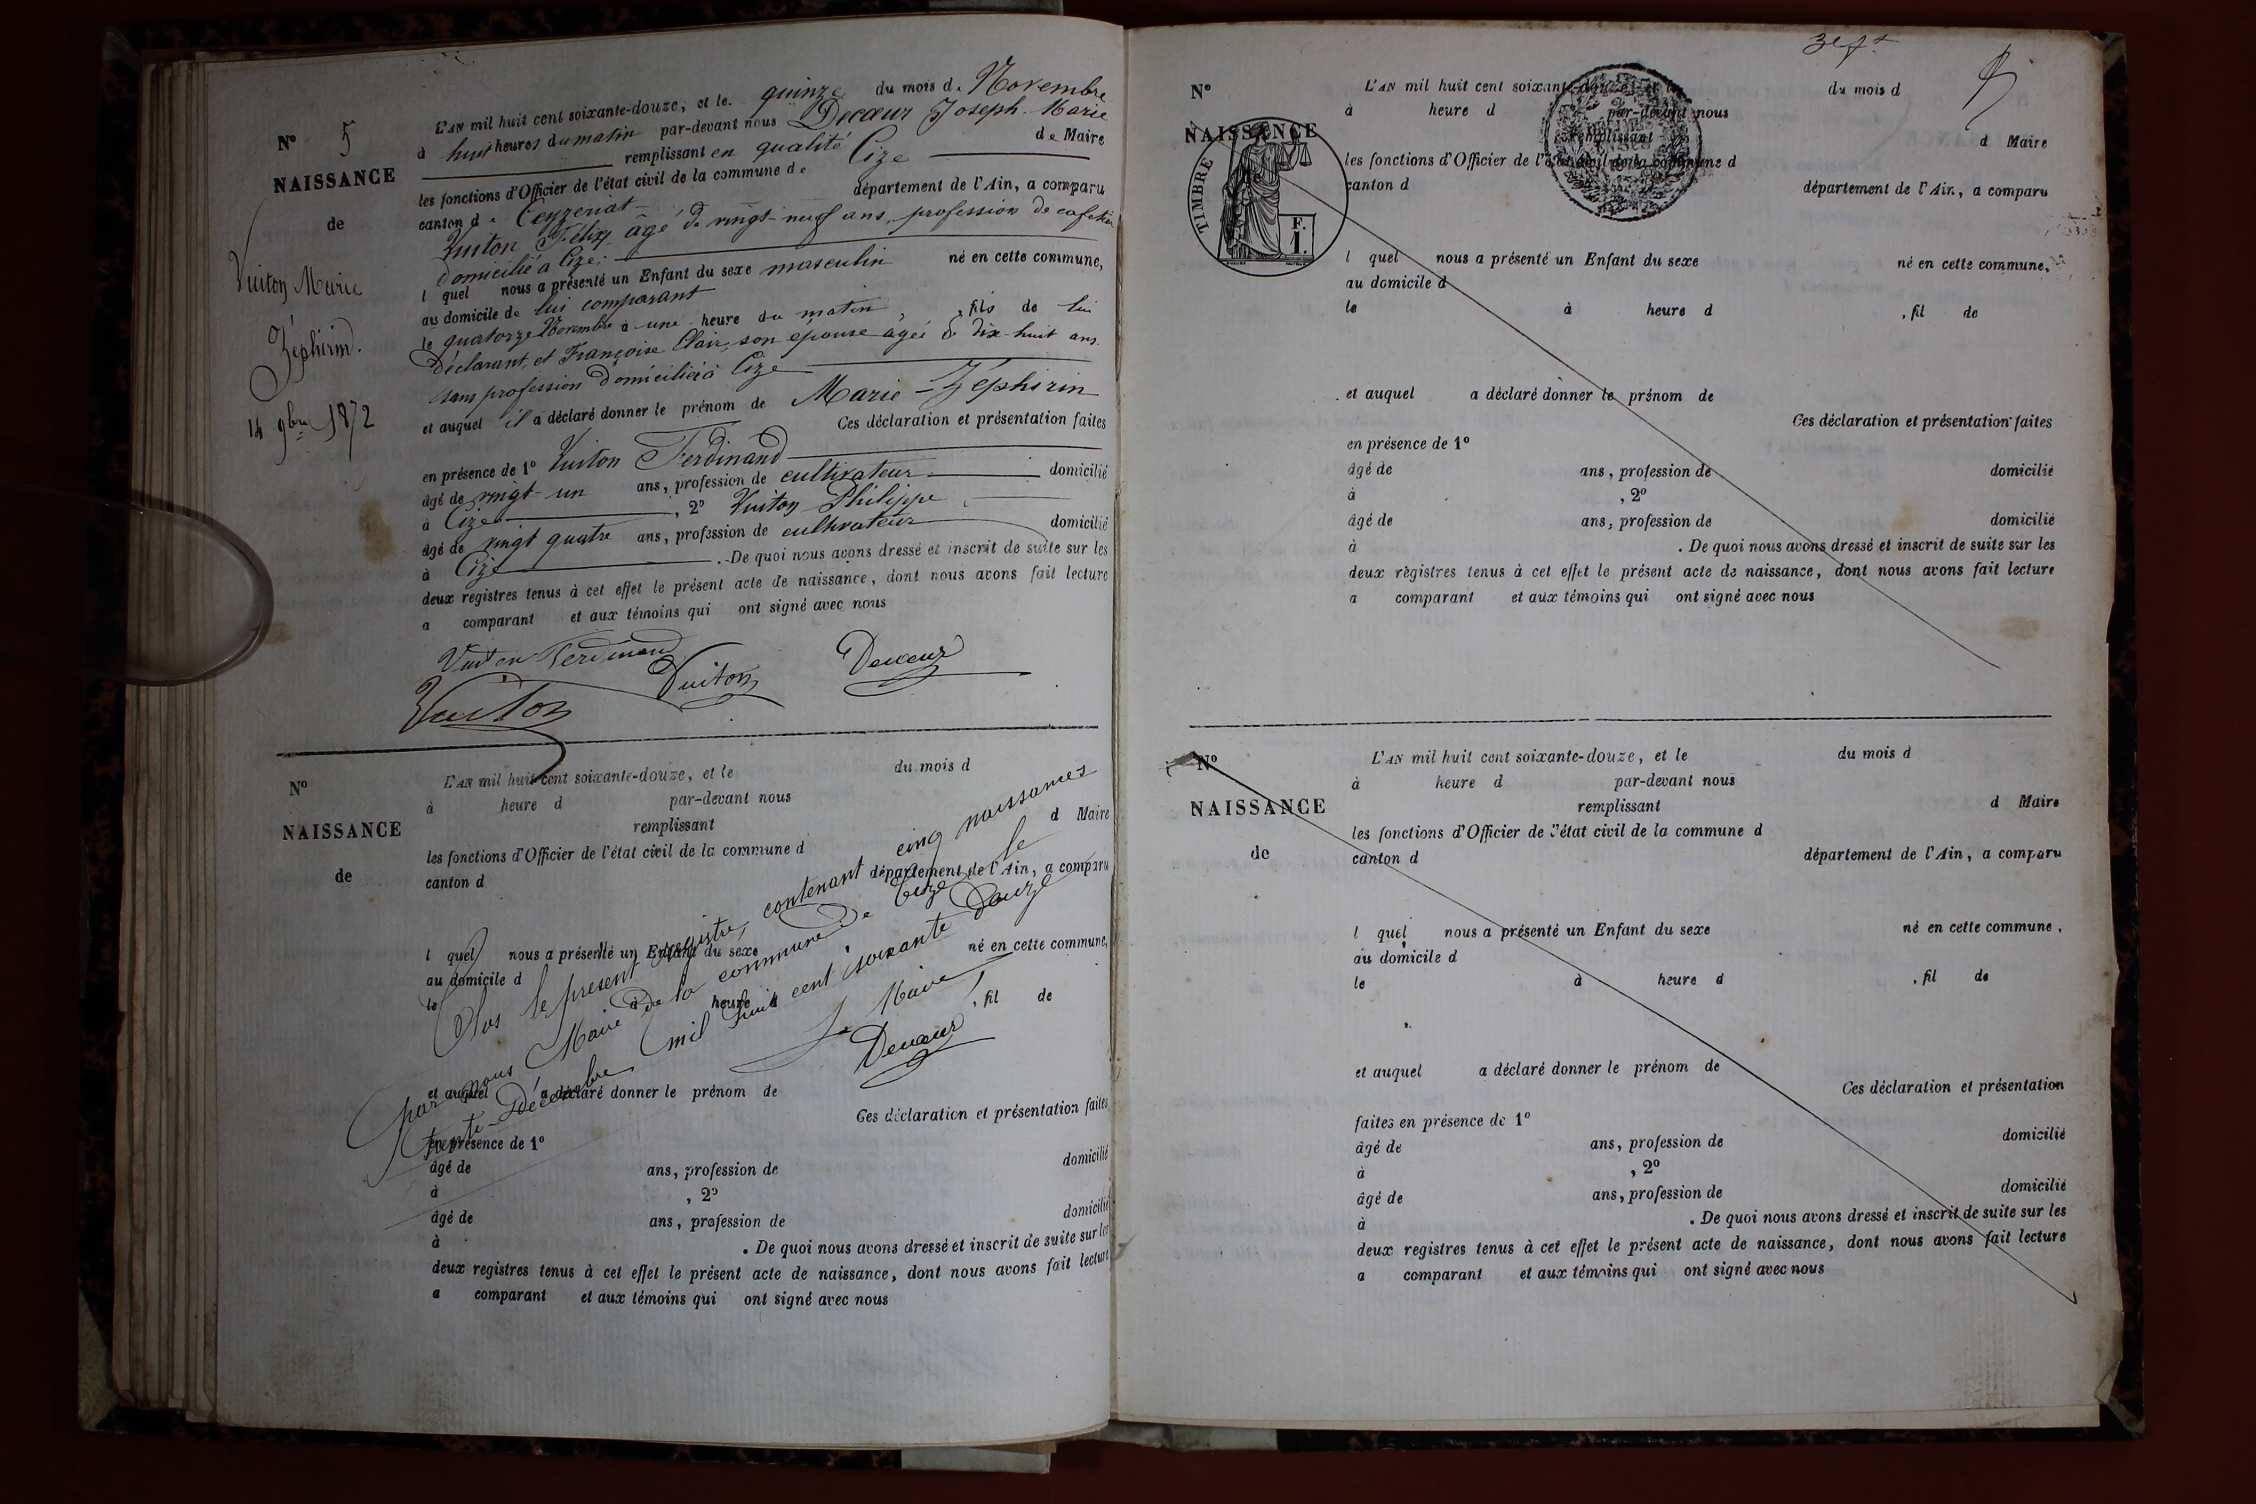 N° 5
NAISSANCE
de
Vuiton Marie
Zéphirin.
14 9bre 1872
L'AN mil huit cent soixante-douze, et le quinze du mois de Novembre
à huit heures du matin par-devant nous Decœur Joseph-Marie
remplissant en qualité de Maire
les fonctions d'Officier de l'état civil de la commune de Cize
canton de Ceyzeriat département de l'Ain, a comparu
Vuiton Félix, âgé de vingt-neuf ans, profession de cafetier
domicilié à Cize;
l quel nous a présenté un Enfant du sexe masculin né en cette commune,
au domicile de lui comparant
le quatorze Novembre à une heure du matin, fils de lui
Déclarant, et Françoise Clair, son épouse âgée de dix-huit ans
sans profession domiciliée à Cize
et auquel il a déclaré donner le prénom de Marie-Zéphirin
Ces déclaration et présentation faites
en présence de 1° Vuiton Ferdinand
âgé de vingt-un ans, profession de cultivateur domicilié
à Cize, 2° Vuiton Philippe
âgé de vingt quatre ans, profession de cultivateur domicilié
à Cize. De quoi nous avons dressé et inscrit de suite sur les
deux registres tenus à cet effet le présent acte de naissance, dont nous avons fait lecture
a comparant et aux témoins qui ont signé avec nous
Vuiton Ferdinand
Vuiton
Decœur
Vuiton
N°
NAISSANCE
de
L'AN mil huit cent soixante-douze, et le du mois d
à heure d par-devant nous
remplissant d Maire
les fonctions d'Officier de l'état civil de la commune d
canton d département de l'Ain, a comparu
l quel nous a présenté un Enfant du sexe né en cette commune,
au domicile d
le à heure d , fil de
et auquel a déclaré donner le prénom de
Ces déclaration et présentation faites
en présence de 1°
âgé de ans, profession de domicilié
à , 2°
âgé de ans, profession de domicilié
à . De quoi nous avons dressé et inscrit de suite sur les
deux registres tenus à cet effet le présent acte de naissance, dont nous avons fait lecture
a comparant et aux témoins qui ont signé avec nous
Clos le présent registre, contenant cinq naissances
par nous Maire de la commune de Cize le
trente-décembre mil huit cent soixante douze
Le Maire
Decœur
3e ft
5
N°
NAISSANCE
de
TIMBRE
F.
1.
L'AN mil huit cent soixante-douze, et le du mois d
à heure d par-devant nous
remplissant d Maire
les fonctions d'Officier de l'état civil de la commune d
canton d département de l'Ain, a comparu
l quel nous a présenté un Enfant du sexe né en cette commune,
au domicile d
le à heure d , fil de
et auquel a déclaré donner le prénom de
Ces déclaration et présentation faites
en présence de 1°
âgé de ans, profession de domicilié
à , 2°
âgé de ans, profession de domicilié
à . De quoi nous avons dressé et inscrit de suite sur les
deux règistres tenus à cet effet le présent acte de naissance, dont nous avons fait lecture
a comparant et aux témoins qui ont signé avec nous
N°
NAISSANCE
de
L'AN mil huit cent soixante-douze, et le du mois d
à heure d par-devant nous
remplissant d Maire
les fonctions d'Officier de l'état civil de la commune d
canton d département de l'Ain, a comparu
l quel nous a présenté un Enfant du sexe né en cette commune,
au domicile d
le à heure d , fil de
et auquel a déclaré donner le prénom de
Ces déclaration et présentation
faites en présence de 1°
âgé de ans, profession de domicilié
à , 2°
âgé de ans, profession de domicilié
à . De quoi nous avons dressé et inscrit de suite sur les
deux registres tenus à cet effet le présent acte de naissance, dont nous avons fait lecture
a comparant et aux témoins qui ont signé avec nous